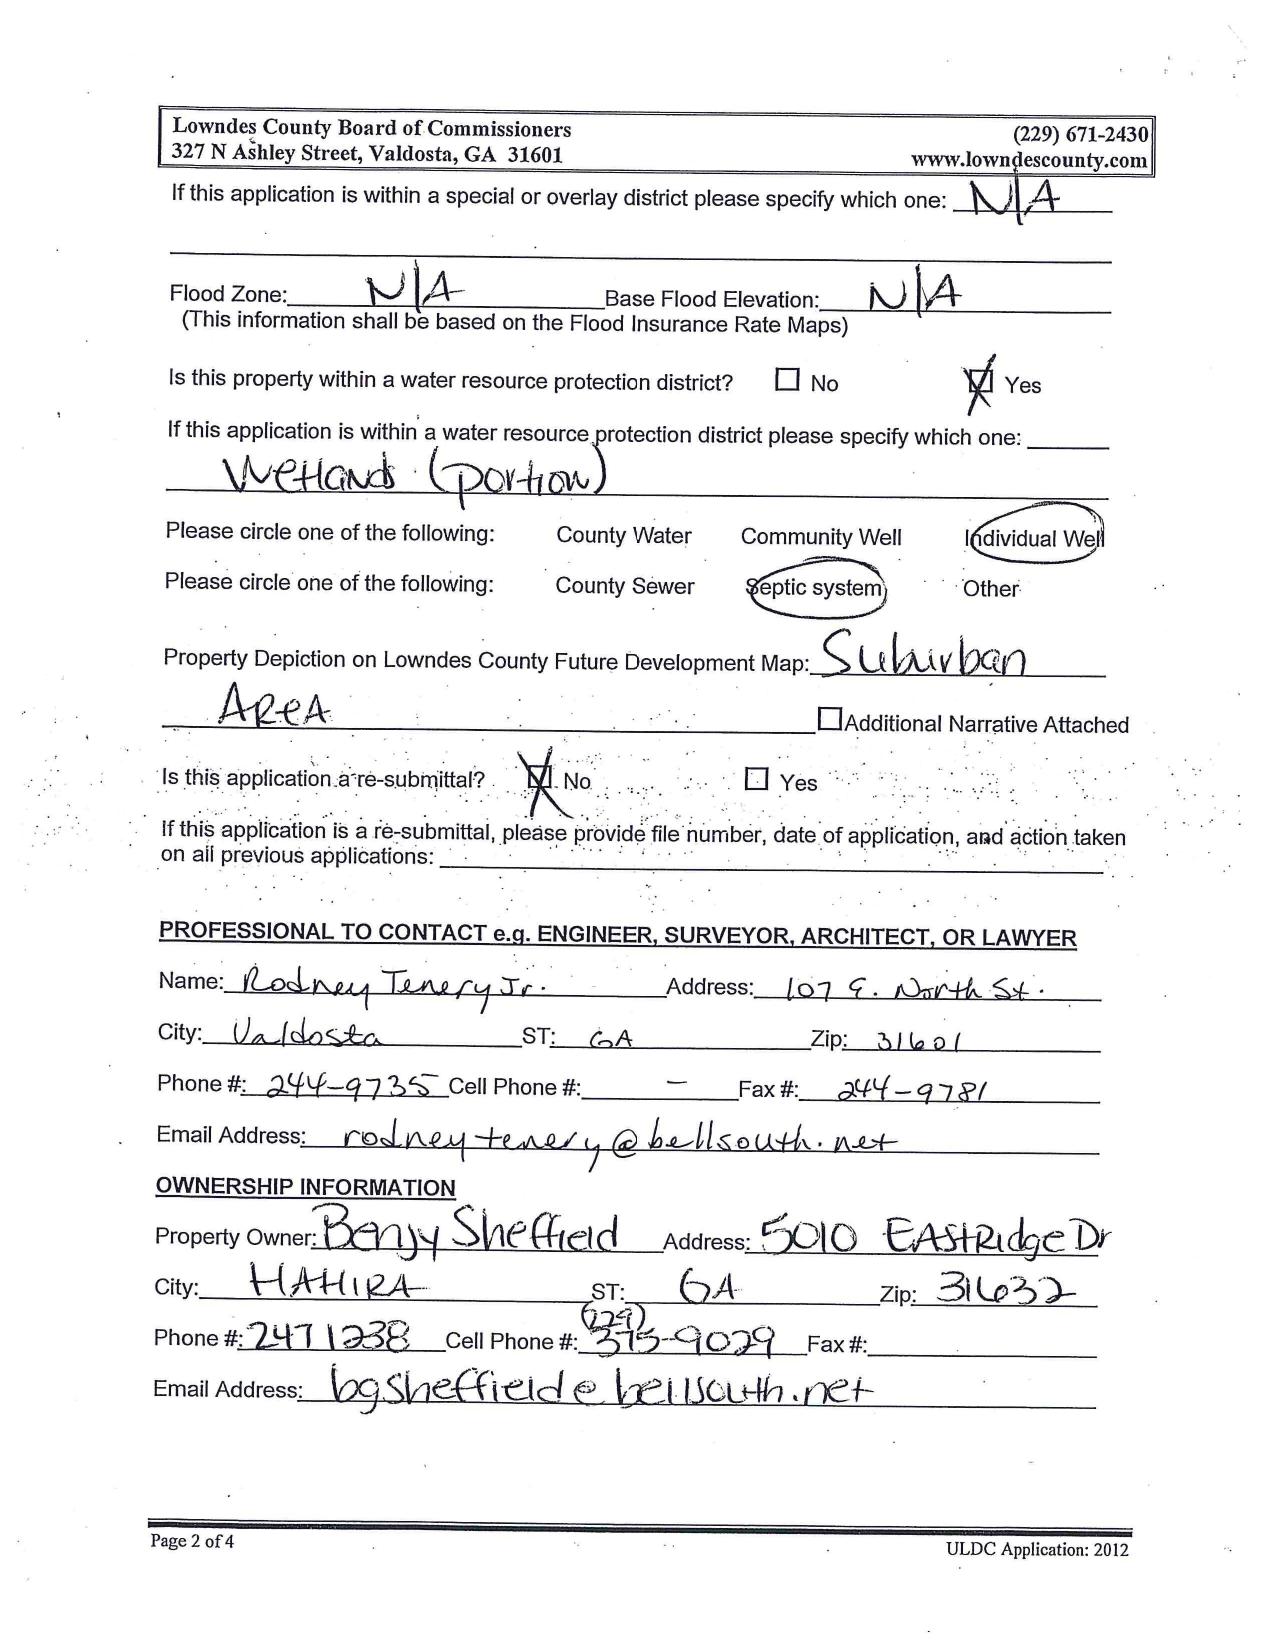 Lowndes County Board of Commissioners (229) 671-2430
327 N Ashley Street, Valdosta, GA 31601 www.lowndescounty.com
If this application is within a special or overlay district please specify which one: N/A
Flood Zone: N/A Base Flood Elevation: N/A
(This information shall be based on the Flood Insurance Rate Maps)
Is this property within a water resource protection district? ☐ No ☒ Yes
If this application is within a water resource protection district please specify which one:
Wetlands (portion)
Please circle one of the following: County Water Community Well Individual Well
Please circle one of the following: County Sewer Septic system Other
Property Depiction on Lowndes County Future Development Map: Suburban
Area ☐ Additional Narrative Attached
Is this application a re-submittal? ☒ No ☐ Yes
If this application is a re-submittal, please provide file number, date of application, and action taken
on all previous applications:
PROFESSIONAL TO CONTACT e.g. ENGINEER, SURVEYOR, ARCHITECT, OR LAWYER
Name: Rodney Tenery Jr. Address: 107 E. North St.
City: Valdosta ST: GA Zip: 31601
Phone #: 244-9735 Cell Phone #: - Fax #: 244-9781
Email Address: rodneytenery@bellsouth.net
OWNERSHIP INFORMATION
Property Owner: Benjy Sheffield Address: 5010 EAStRidge Dr
City: HAHIRA ST: GA Zip: 31632
Phone #: 247 1238 Cell Phone #: (229) 375-9029 Fax #:
Email Address: bgsheffield@bellsouth.net
Page 2 of 4 ULDC Application: 2012